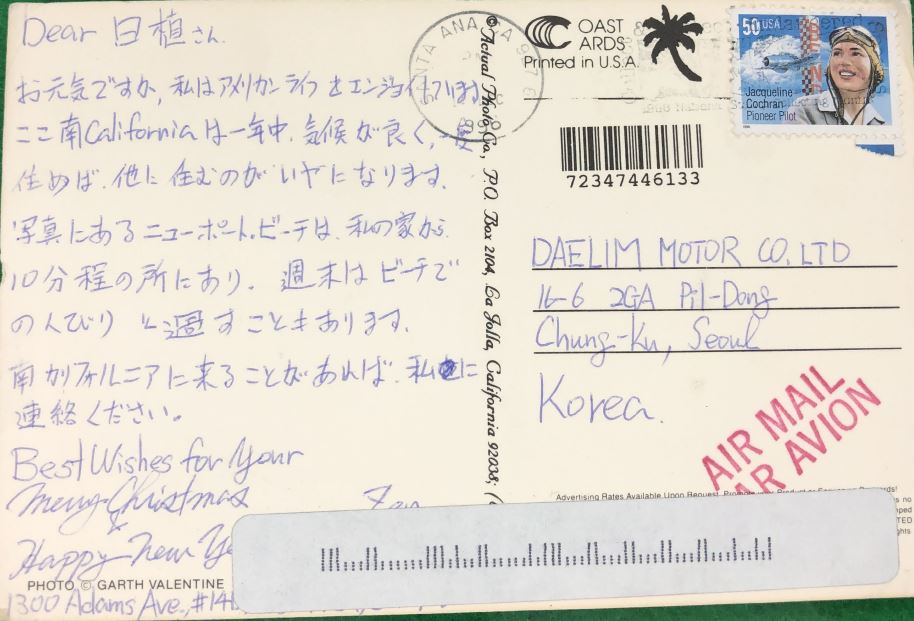 Dear 日植さん.
お元気ですか, 私はアメリカンライフをエンジョイしています.
ここ南Californiaは一年中, 気候が良く, 一度
住めば, 他に住むのがいやになります.
写真にあるニューポート・ビーチは, 私の家から
10分程の所にあり. 週末はビーチで
のんびりと過すこともあります.
南カリフォルニアに来ることがあれば, 私に
連絡ください。
Best Wishes for Your
Merry Christmas
&
Happy New
PHOTO © GARTH VALENTINE
1300 Adams Ave., #14
© Actual Photo Co., P.O. Box 2104, La Jolla, California 92038,
SANTA ANA CA
COAST
CARDS
Printed in U.S.A.
50 USA
Jacqueline
Cochran
Pioneer Pilot
72347446133
DAELIM MOTOR CO. LTD
16-6 2GA Pil-Dong
Chung-Ku, Seoul
Korea.
AIR MAIL
PAR AVION
Advertising Rates Available Upon Request.